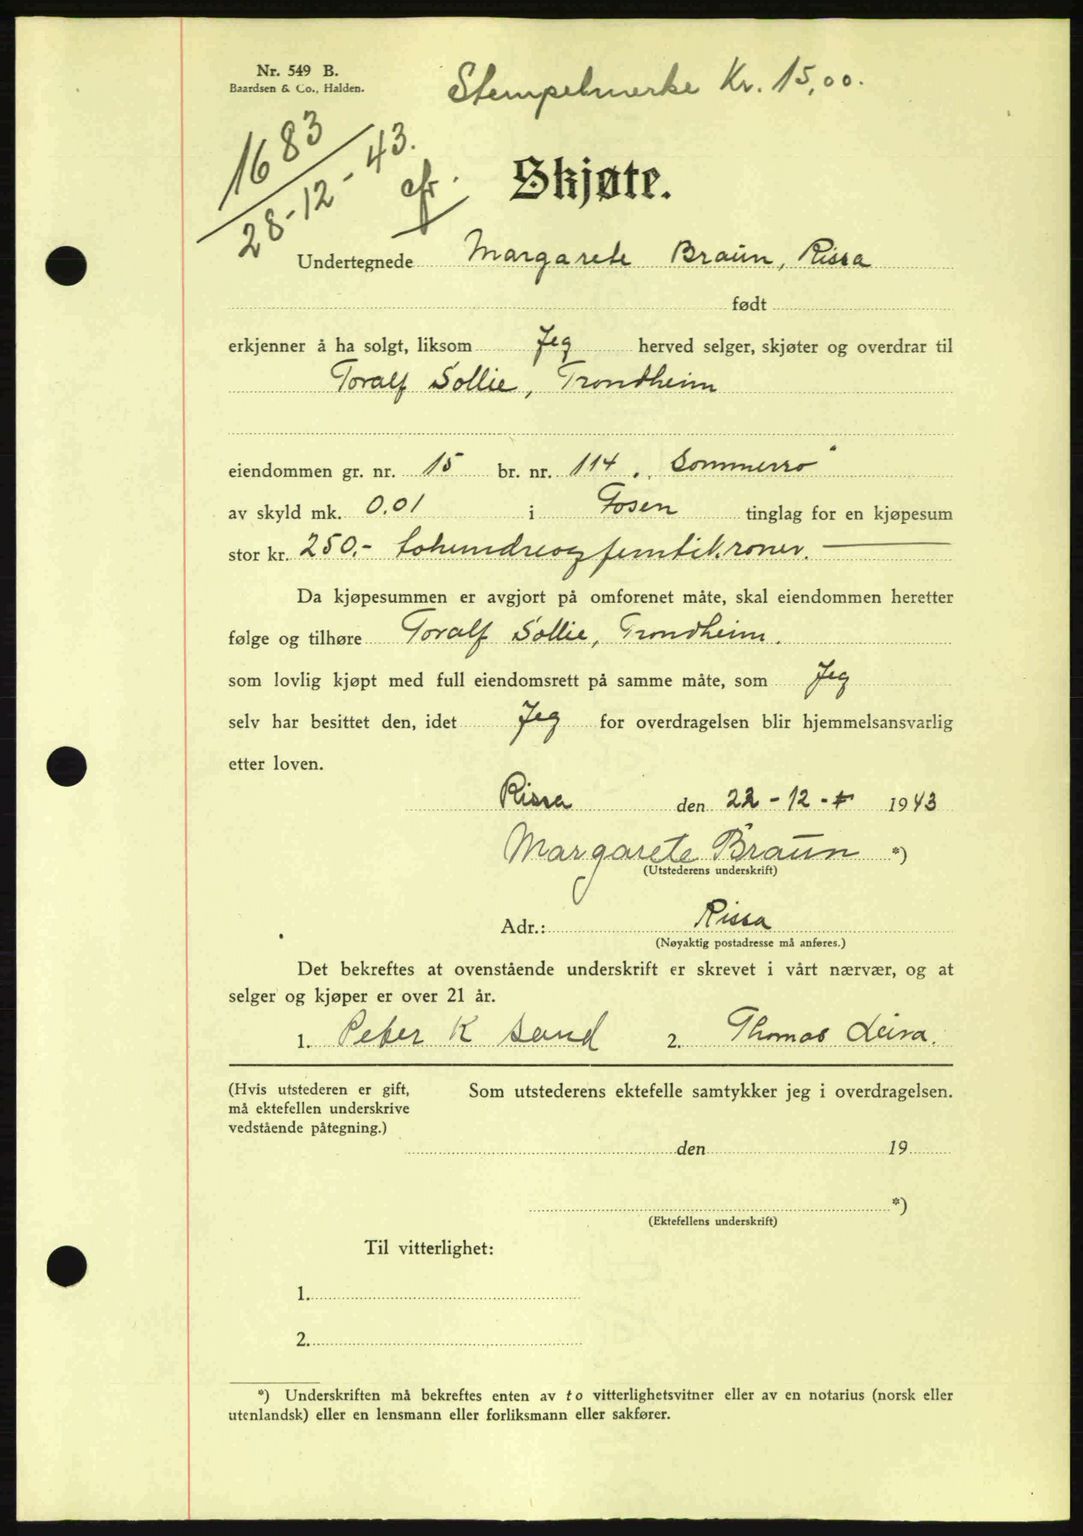 Nr. 549 B.
Baardsen & Co., Halden.
Stempelmerke Kr. 15,00.
1683
28-12-43.
Skjøte.
Undertegnede Margarete Braun, Rissa
født
erkjenner å ha solgt, liksom Jeg herved selger, skjøter og overdrar til
Toralf Sollie, Trondheim
eiendommen gr. nr. 15 br. nr. 114 „Sommerro"
av skyld mk. 0,01 i Fosen tinglag for en kjøpesum
stor kr. 250,- tohundreogfemtikroner.
Da kjøpesummen er avgjort på omforenet måte, skal eiendommen heretter
følge og tilhøre Toralf Sollie, Trondheim.
som lovlig kjøpt med full eiendomsrett på samme måte, som Jeg
selv har besittet den, idet Jeg for overdragelsen blir hjemmelsansvarlig
etter loven.
Rissa den 22-12- 1943
Margarete Braun *)
(Utstederens underskrift)
Adr.: Rissa
(Nøyaktig postadresse må anføres.)
Det bekreftes at ovenstående underskrift er skrevet i vårt nærvær, og at
selger og kjøper er over 21 år.
1. Peter K Sand 2. Thomas Leira.
(Hvis utstederen er gift, Som utstederens ektefelle samtykker jeg i overdragelsen.
må ektefellen underskrive
vedstående påtegning.)
den 19
*)
(Ektefellens underskrift)
Til vitterlighet:
1.
2.
*) Underskriften må bekreftes enten av to vitterlighetsvitner eller av en notarius (norsk eller
utenlandsk) eller en lensmann eller forliksmann eller sakfører.